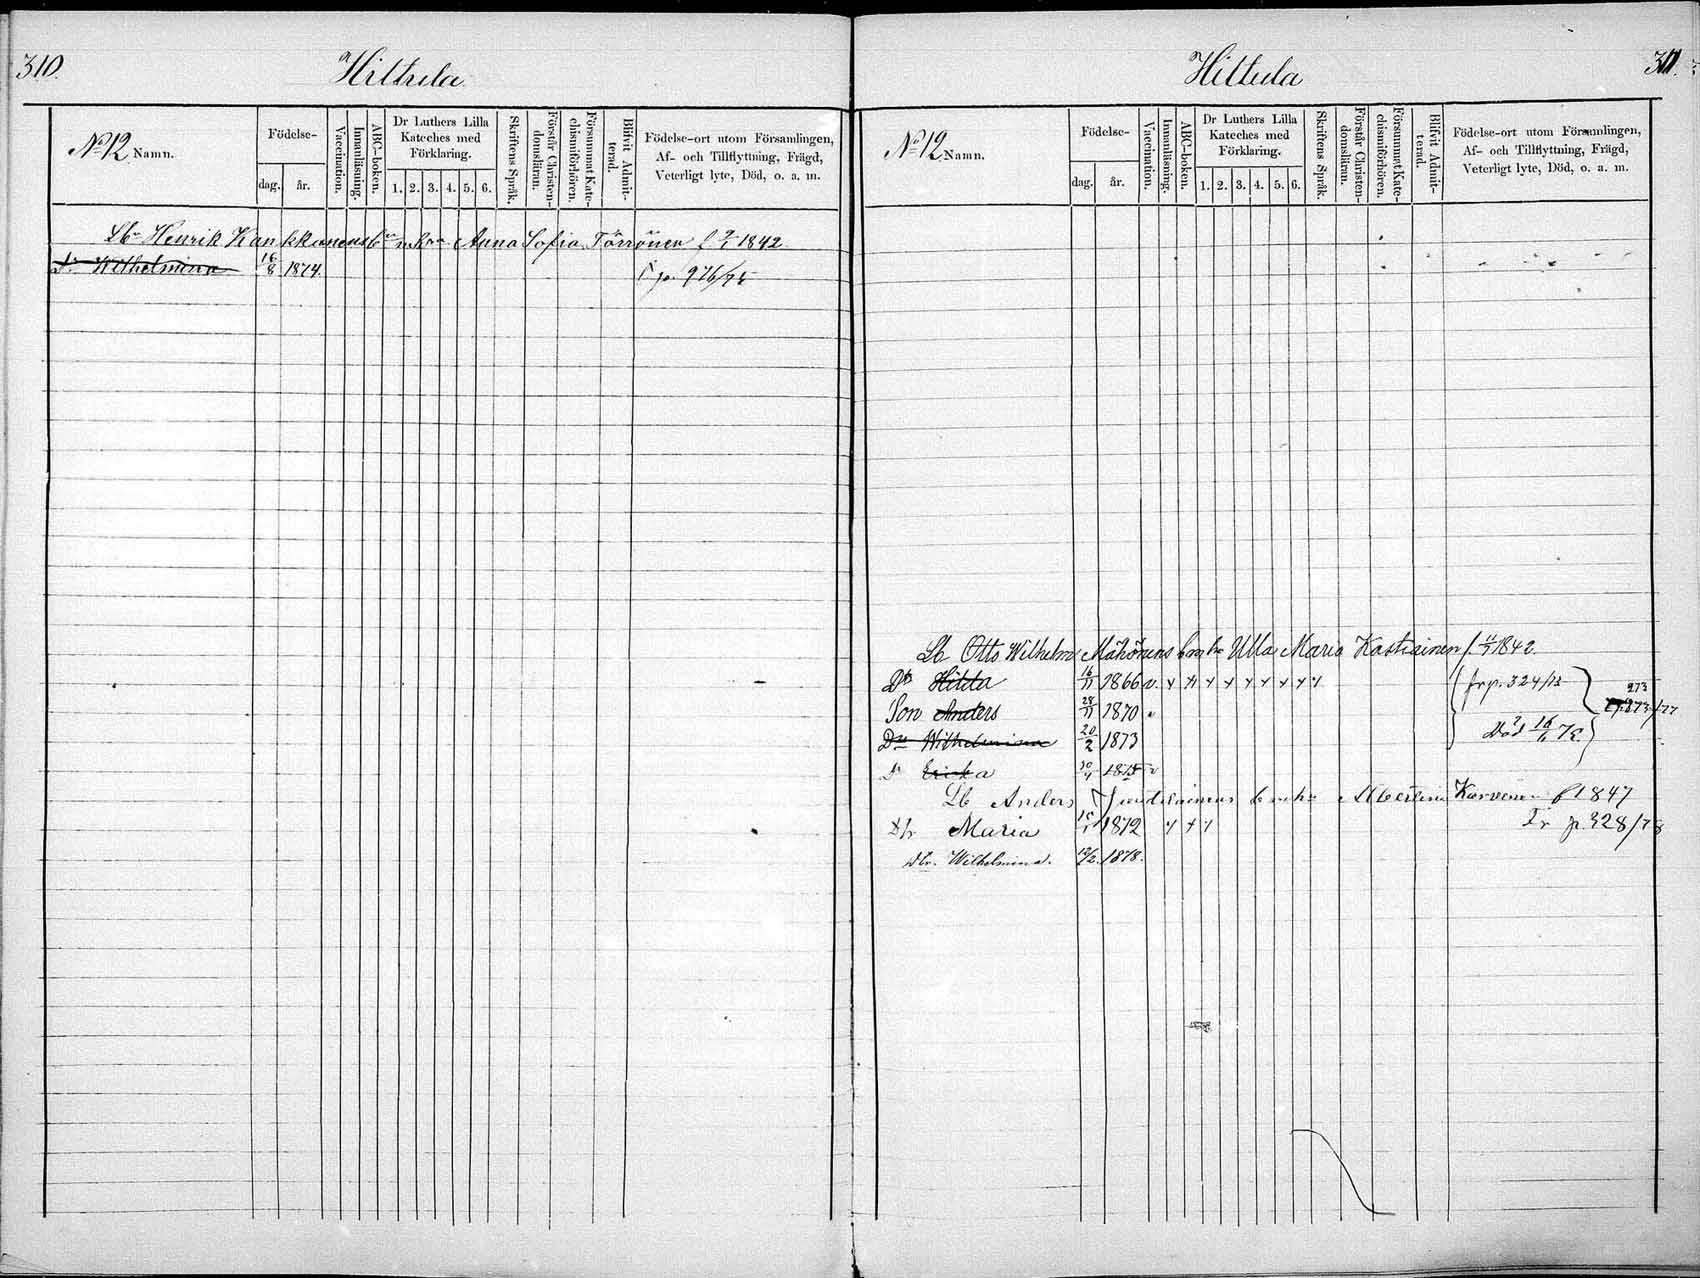 310.
Hittula
No 12 Namn.
Födelse-
dag. år.
Vaccination.
Innanläsning.
ABC-boken.
Dr Luthers Lilla
Kateches med
Förklaring.
1. 2. 3. 4. 5. 6.
Skriftens Språk.
Förstår Christen-
domsläran.
Försummat Kate-
chismiförhören.
Blifvit Admit-
terad.
Födelse-ort utom Församlingen,
Af- och Tillflyttning, Frägd,
Veterligt lyte, Död, o. a. m.
Lbr Henrik Kankkunens Anna Sofia Törrönen f 1842
Dr Wilhelmina 16/8 1874. p. 976/75
Hittula
311.
No 12 Namn.
Födelse-
dag. år.
Vaccination.
Innanläsning.
ABC-boken.
Dr Luthers Lilla
Kateches med
Förklaring.
1. 2. 3. 4. 5. 6.
Skriftens Språk.
Förstår Christen-
domsläran.
Försummat Kate-
chismiförhören.
Blifvit Admit-
terad.
Födelse-ort utom Församlingen,
Af- och Tillflyttning, Frägd,
Veterligt lyte, Död, o. a. m.
Lb Otto Wilhelm Mähönens Ulla Maria Kastiainen f. 11/7 1842
Dr Hilda 16/11 1866 v. fr p. 324/73
Son Anders 28/11 1870 273
Dr Wilhelmina 20/2 1873 Död 16/6 75
Dr Ericka 30/4 1875 v
Lb Anders Albertina Karvonen f 1847
Dtr Maria 1872 Fr p. 328/78
Dtr. Wilhelmina. 12/2. 1878.